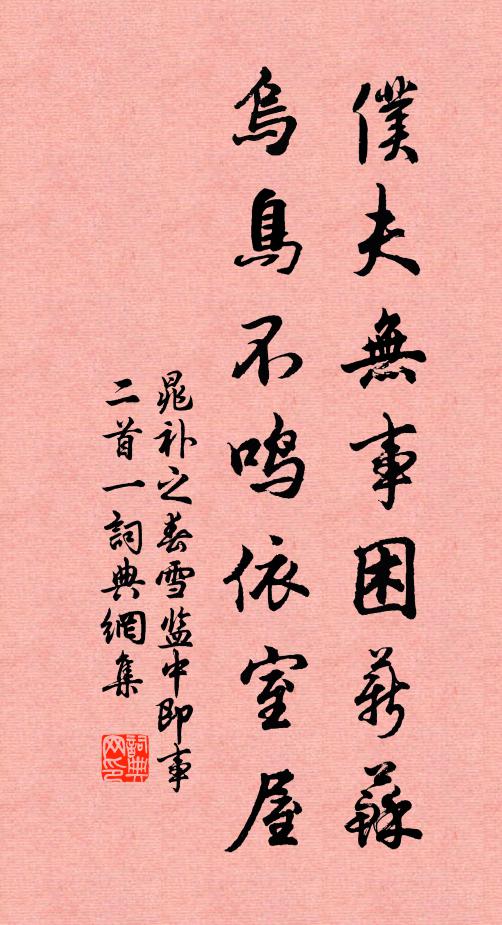 僕夫無事困薪蘇
烏鳥不鳴依室屋
晁补之春雪监中即事
二首一詞典網集
詞典网印